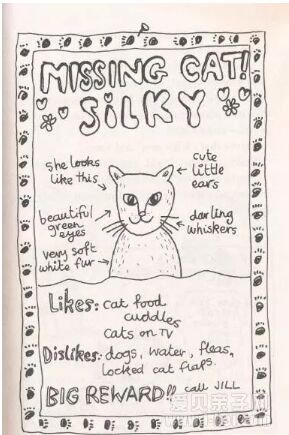 MISSING CAT!
SILKY
she looks
like this
cute
little
ears
beautiful
green
eyes
darling
whiskers
very soft
white fur
Likes: cat food
cuddles
cats on TV
Dislikes: dogs, water, fleas,
locked cat flaps.
BIG REWARD!! call JILL
爱贝亲子网